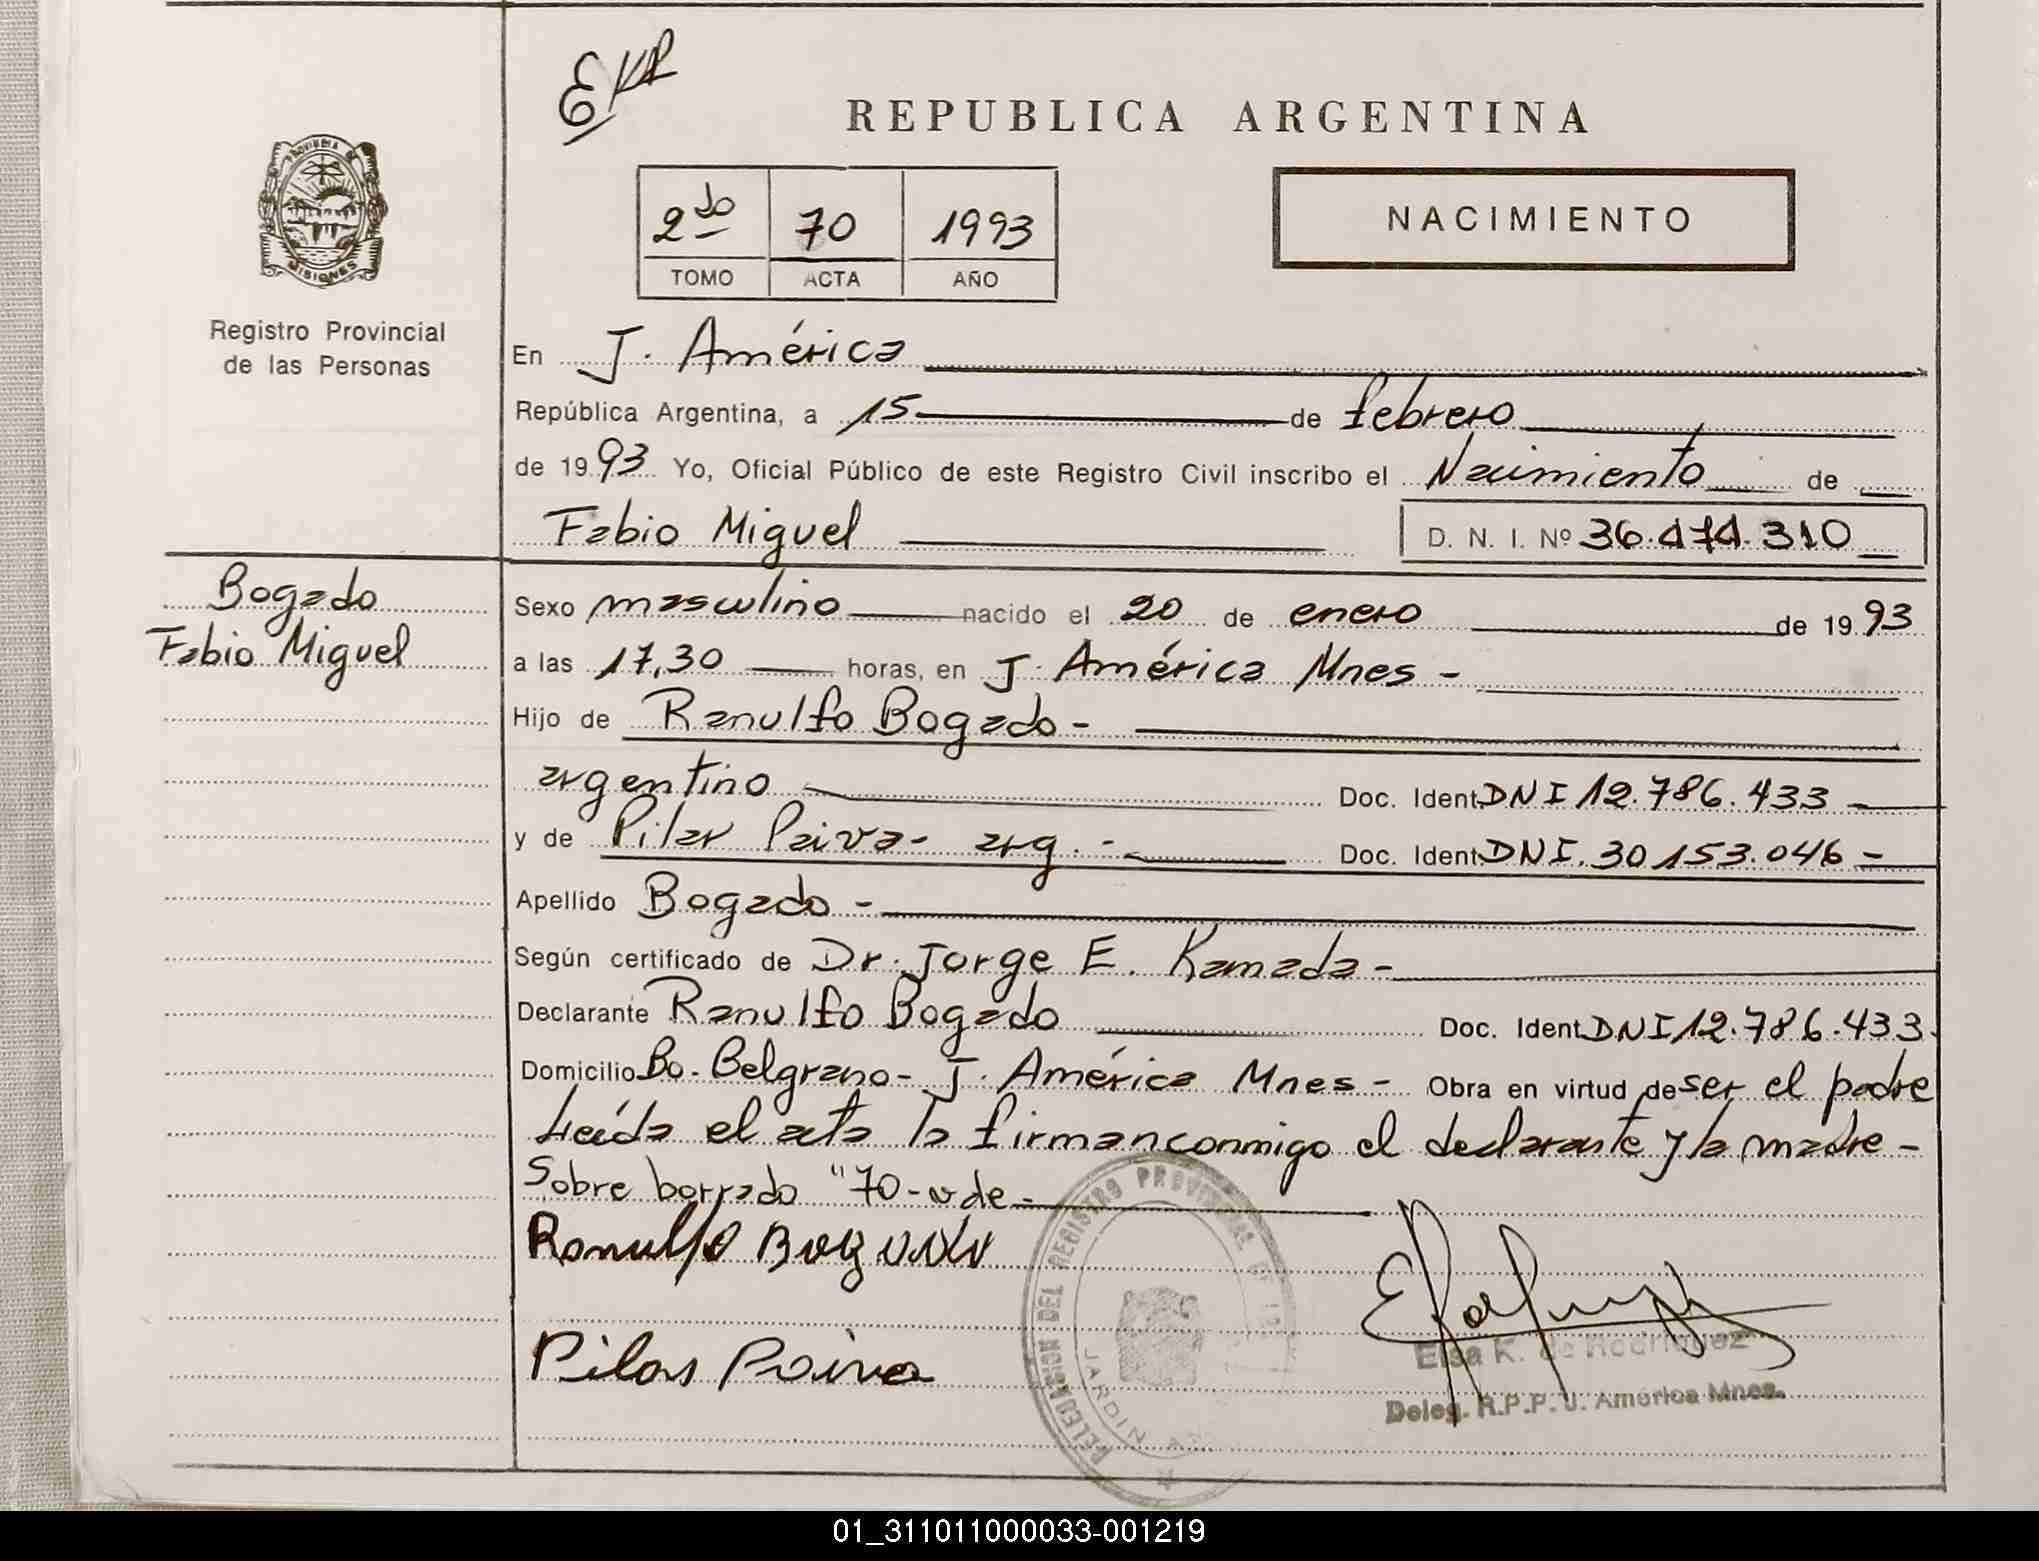 EKR
REPUBLICA ARGENTINA
PROVINCIA DE
MISIONES
Registro Provincial
de las Personas
2do 70 1993
TOMO ACTA AÑO
NACIMIENTO
En J. América
República Argentina, a 15 de febrero
de 1993 Yo, Oficial Público de este Registro Civil inscribo el Nacimiento de
Fabio Miguel D. N. I. Nº 36.474.310
Bogado
Fabio Miguel
Sexo masculino nacido el 20 de enero de 1993
a las 17,30 horas, en J. América Mnes -
Hijo de Ranulfo Bogado -
argentino Doc. Ident. DNI 12.786.433
y de Pilar Paiva - arg. - Doc. Ident. DNI. 30.153.046 -
Apellido Bogado -
Según certificado de Dr. Jorge E. Kamada -
Declarante Ranulfo Bogado Doc. Ident. DNI 12.786.433.
Domicilio Bo. Belgrano - J. América Mnes - Obra en virtud de ser el padre
Leída el acta la firman conmigo el declarante y la madre -
Sobre borrado "70 - v de -
Ranulfo Bogado
Pilar Paiva
DELEGACION DEL REGISTRO PROVINCIAL DE
JARDIN
Elsa K. de Rodriguez
Deleg. R.P.P. J. América Mnes.
01_311011000033-001219